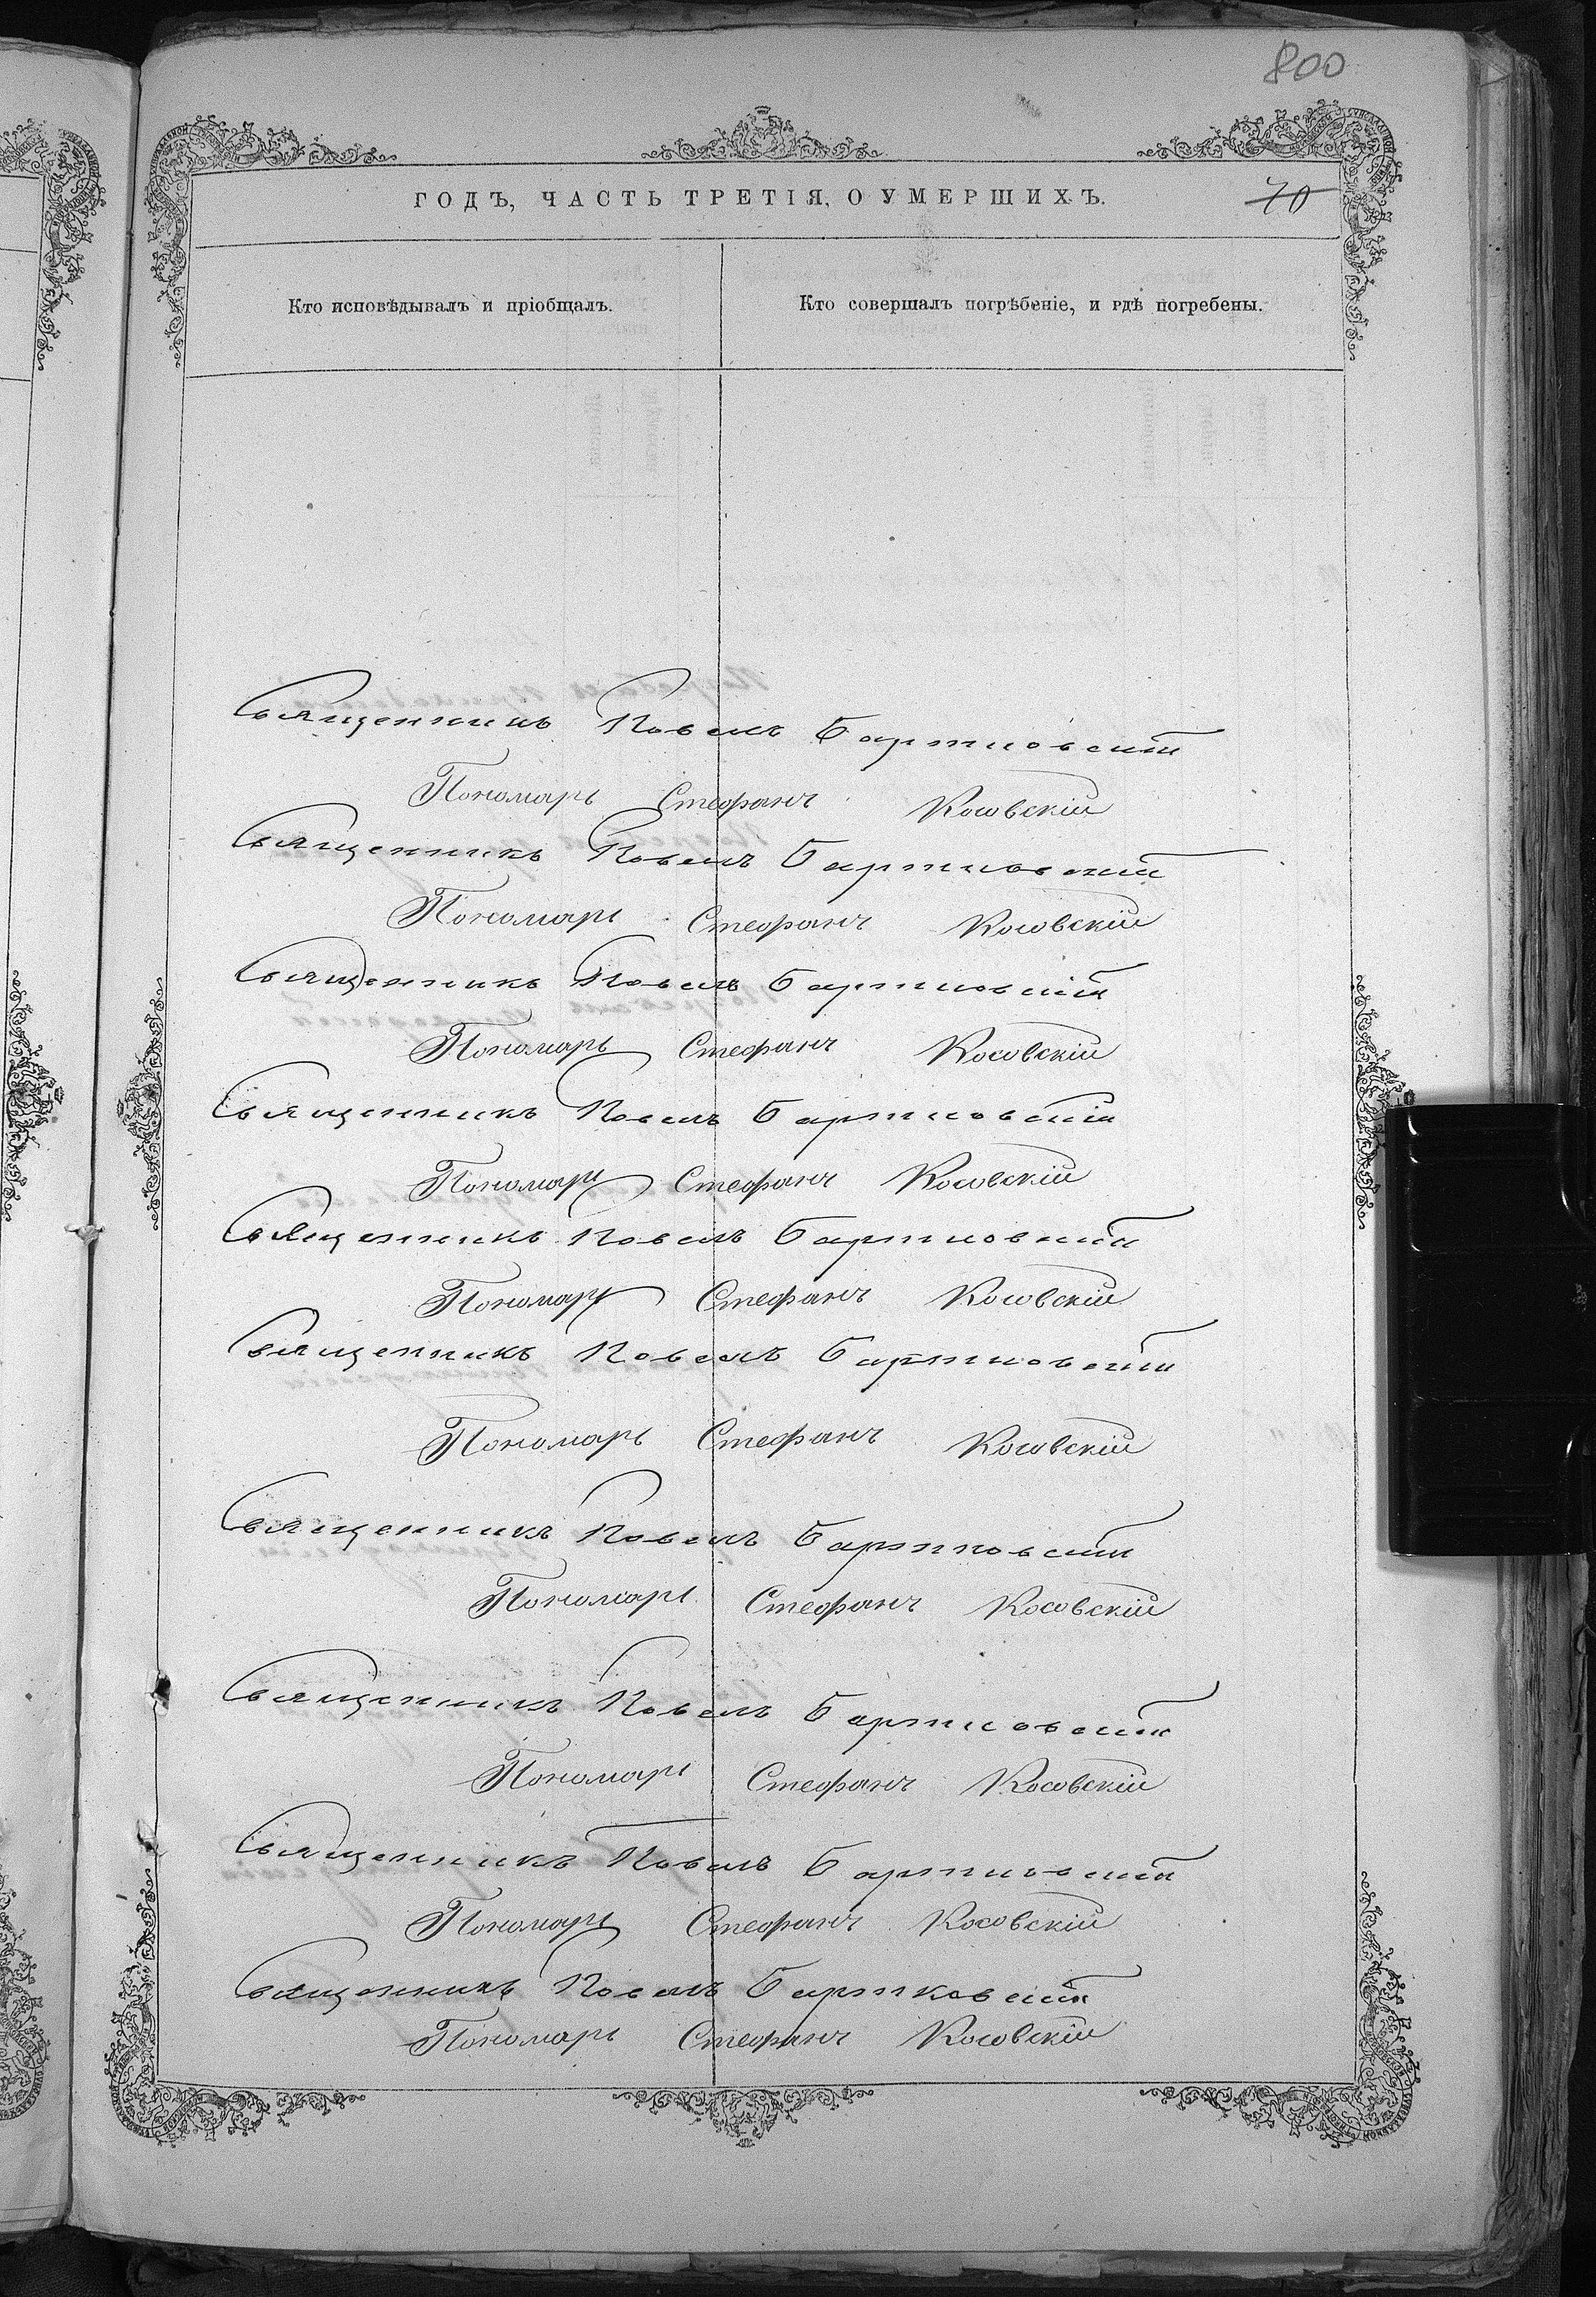 800
ГОДЪ, ЧАСТЬ ТРЕТІЯ, О УМЕРШИХЪ.
70
Кто исповѣдывалъ и пріобщалъ.
Кто совершалъ погрѣбеніе, и гдѣ погребены.
Священникъ Павелъ Бартковскій
Пономарь Стефанъ Косовскій
Священникъ Павелъ Бартковскій
Пономарь Стефанъ Косовскій
Священникъ Павелъ Бартковскій
Пономарь Стефанъ Косовскій
Священникъ Павелъ Бартковскій
Пономарь Стефанъ Косовскій
Священникъ Павелъ Бартковскій
Пономарь Стефанъ Косовскій
Священникъ Павелъ Бартковскій
Пономарь Стефанъ Косовскій
Священникъ Павелъ Бартковскій
Пономарь Стефанъ Косовскій
Священникъ Павелъ Бартковскій
Пономарь Стефанъ Косовскій
Священникъ Павелъ Бартковскій
Пономарь Стефанъ Косовскій
Священникъ Павелъ Бартковскій
Пономарь Стефанъ Косовскій